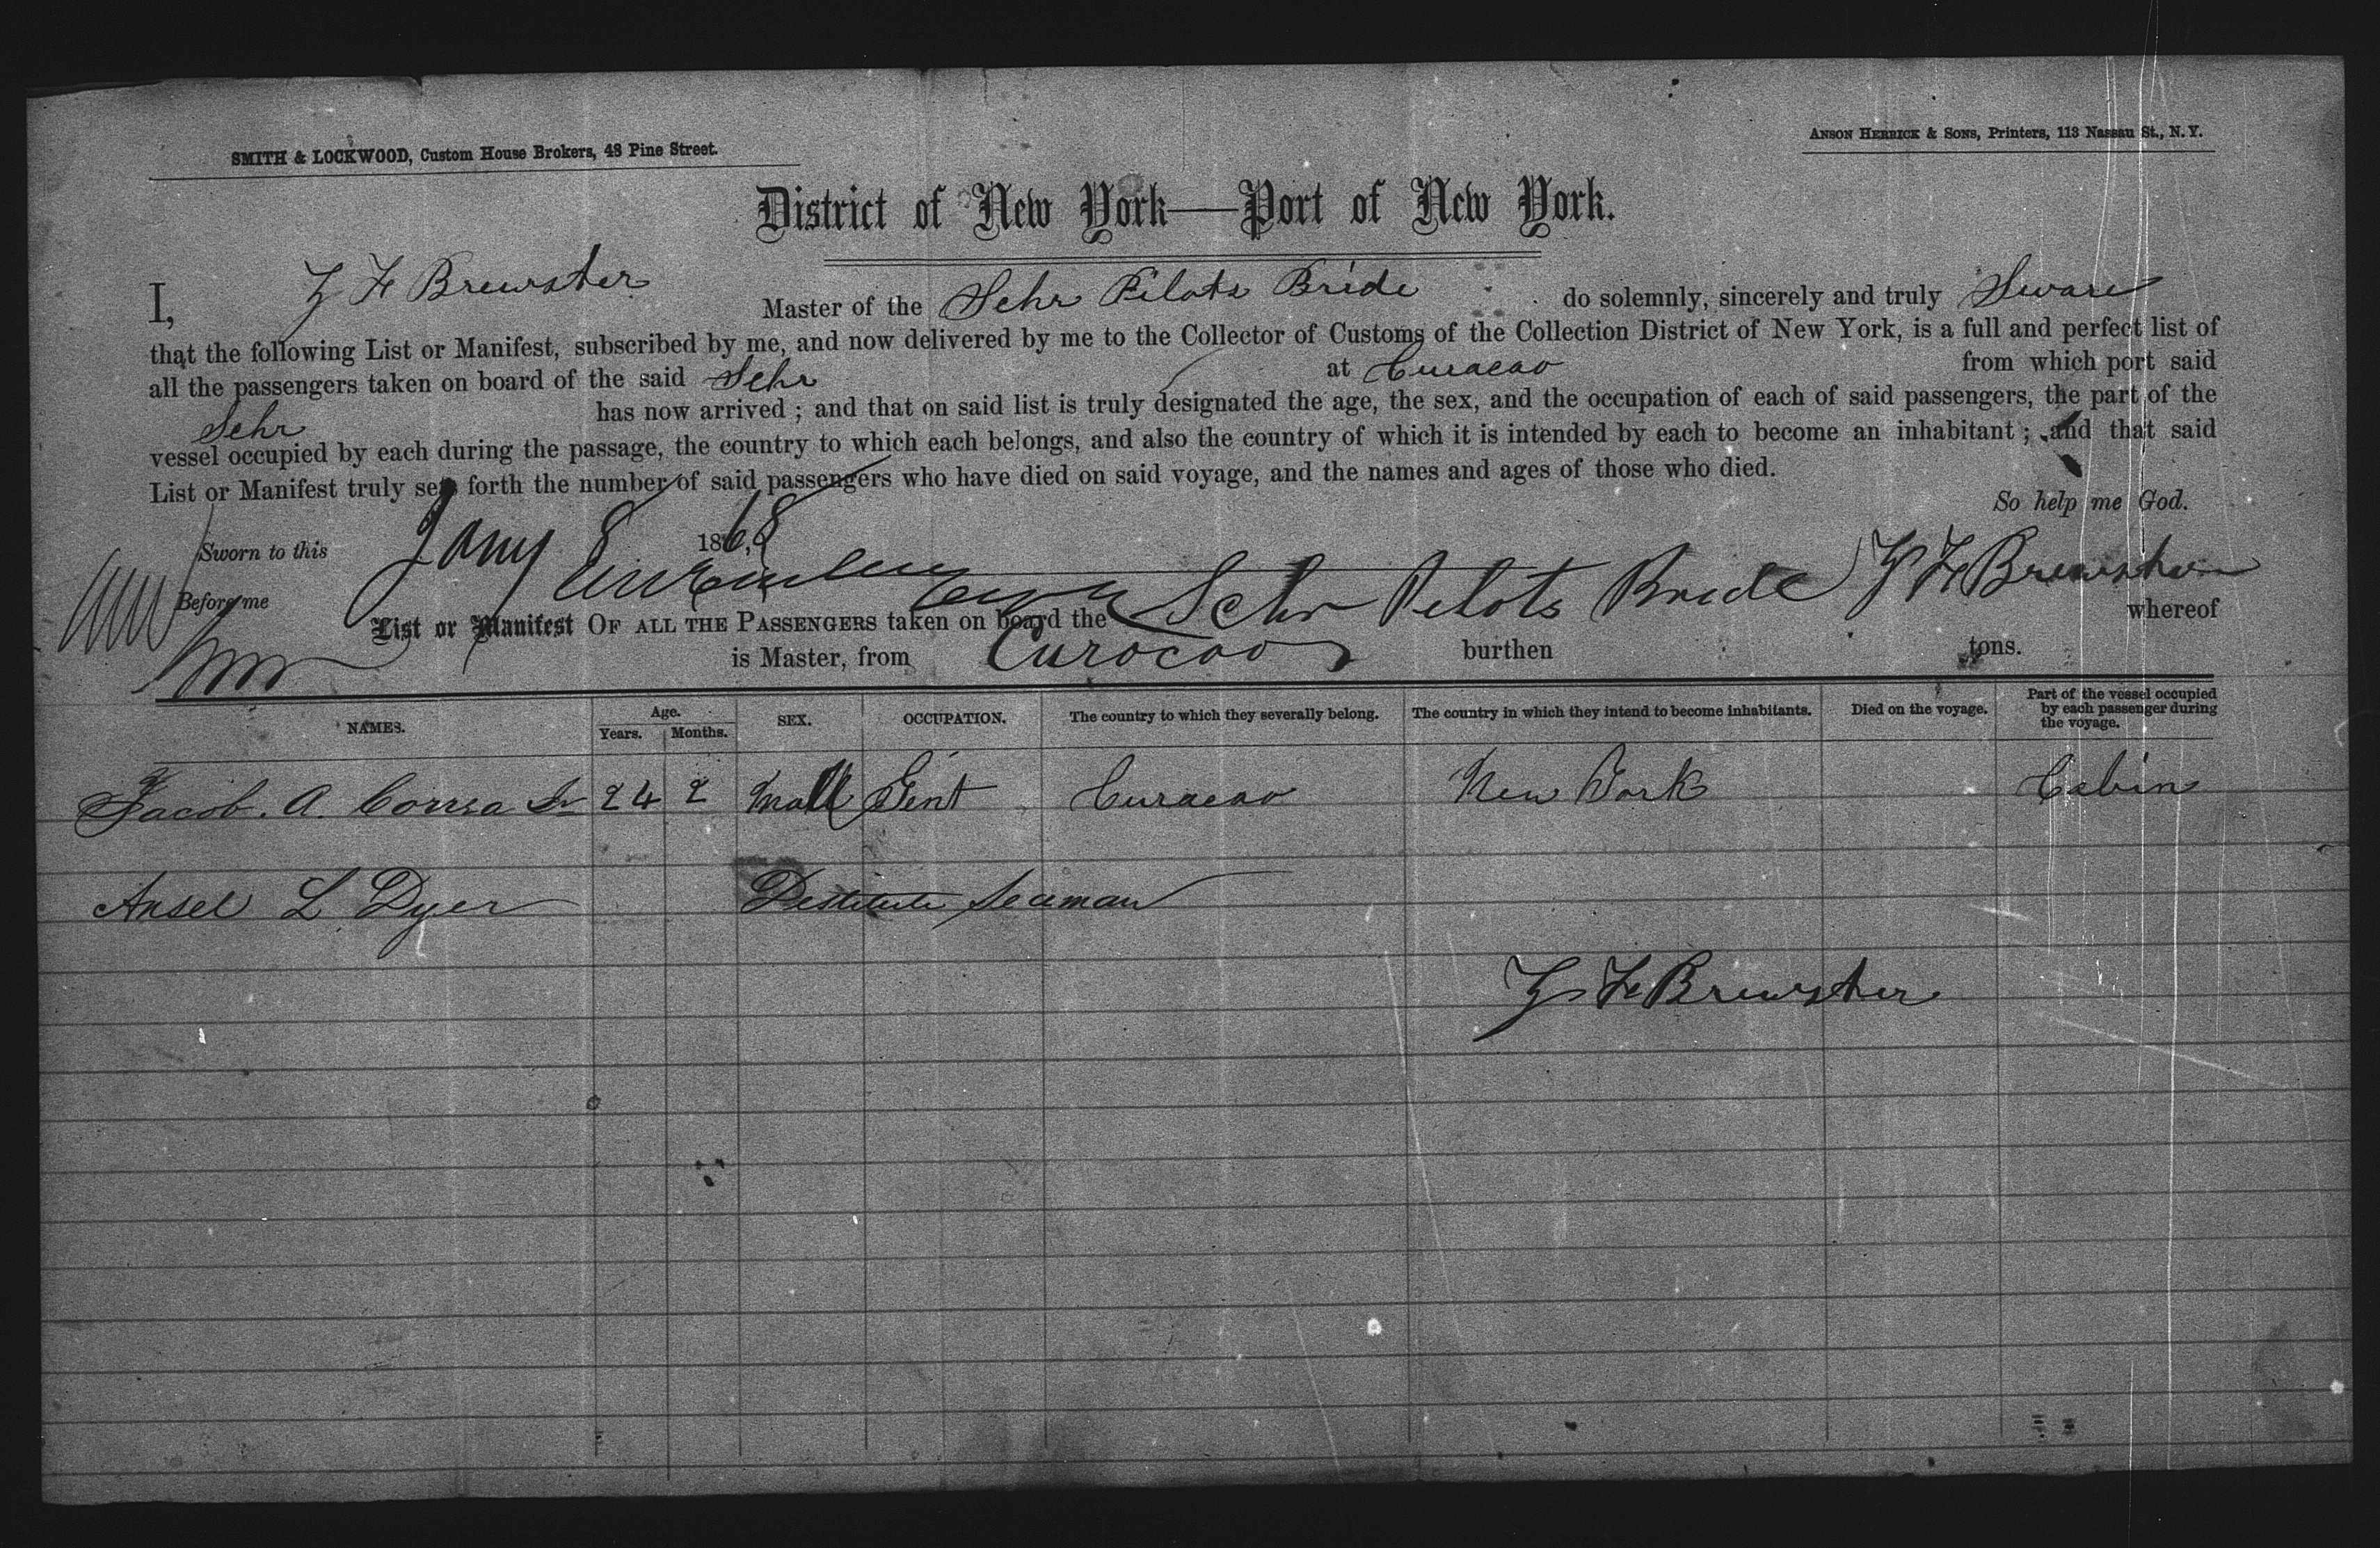 SMITH & LOCKWOOD, Custom House Brokers, 48 Pine Street.
ANSON HERRICK & SONS, Printers, 113 Nassau St., N. Y.
District of New York—Port of New York.
I, Z F Brewster Master of the Schr Pilots Bride do solemnly, sincerely and truly Sware
that the following List or Manifest, subscribed by me, and now delivered by me to the Collector of Customs of the Collection District of New York, is a full and perfect list of
all the passengers taken on board of the said Schr at Curacao from which port said
Schr has now arrived ; and that on said list is truly designated the age, the sex, and the occupation of each of said passengers, the part of the
vessel occupied by each during the passage, the country to which each belongs, and also the country of which it is intended by each to become an inhabitant ; and that said
List or Manifest truly sets forth the number of said passengers who have died on said voyage, and the names and ages of those who died.
So help me God.
Sworn to this Jany 8 1868,
Before me
Z F Brewster
List or Manifest OF ALL THE PASSENGERS taken on board the Schr Pilots Bride whereof
is Master, from Curocao burthen tons.
NAMES. Age. Years. Months. SEX. OCCUPATION. The country to which they severally belong. The country in which they intend to become inhabitants. Died on the voyage. Part of the vessel occupied by each passenger during the voyage.
Jacob. A. Correa Jr 24 2 Male Gent Curacao New York Cabin
Ansel L Dyer Destitute Seaman
Z F Brewster